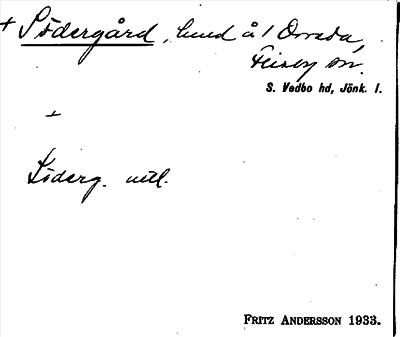 + Södergård, hmd å 1 Orreda,
Flisby sn.
S. Vedbo hd, Jönk. l.
+
Söderg. uttl.
FRITZ ANDERSSON 1933.